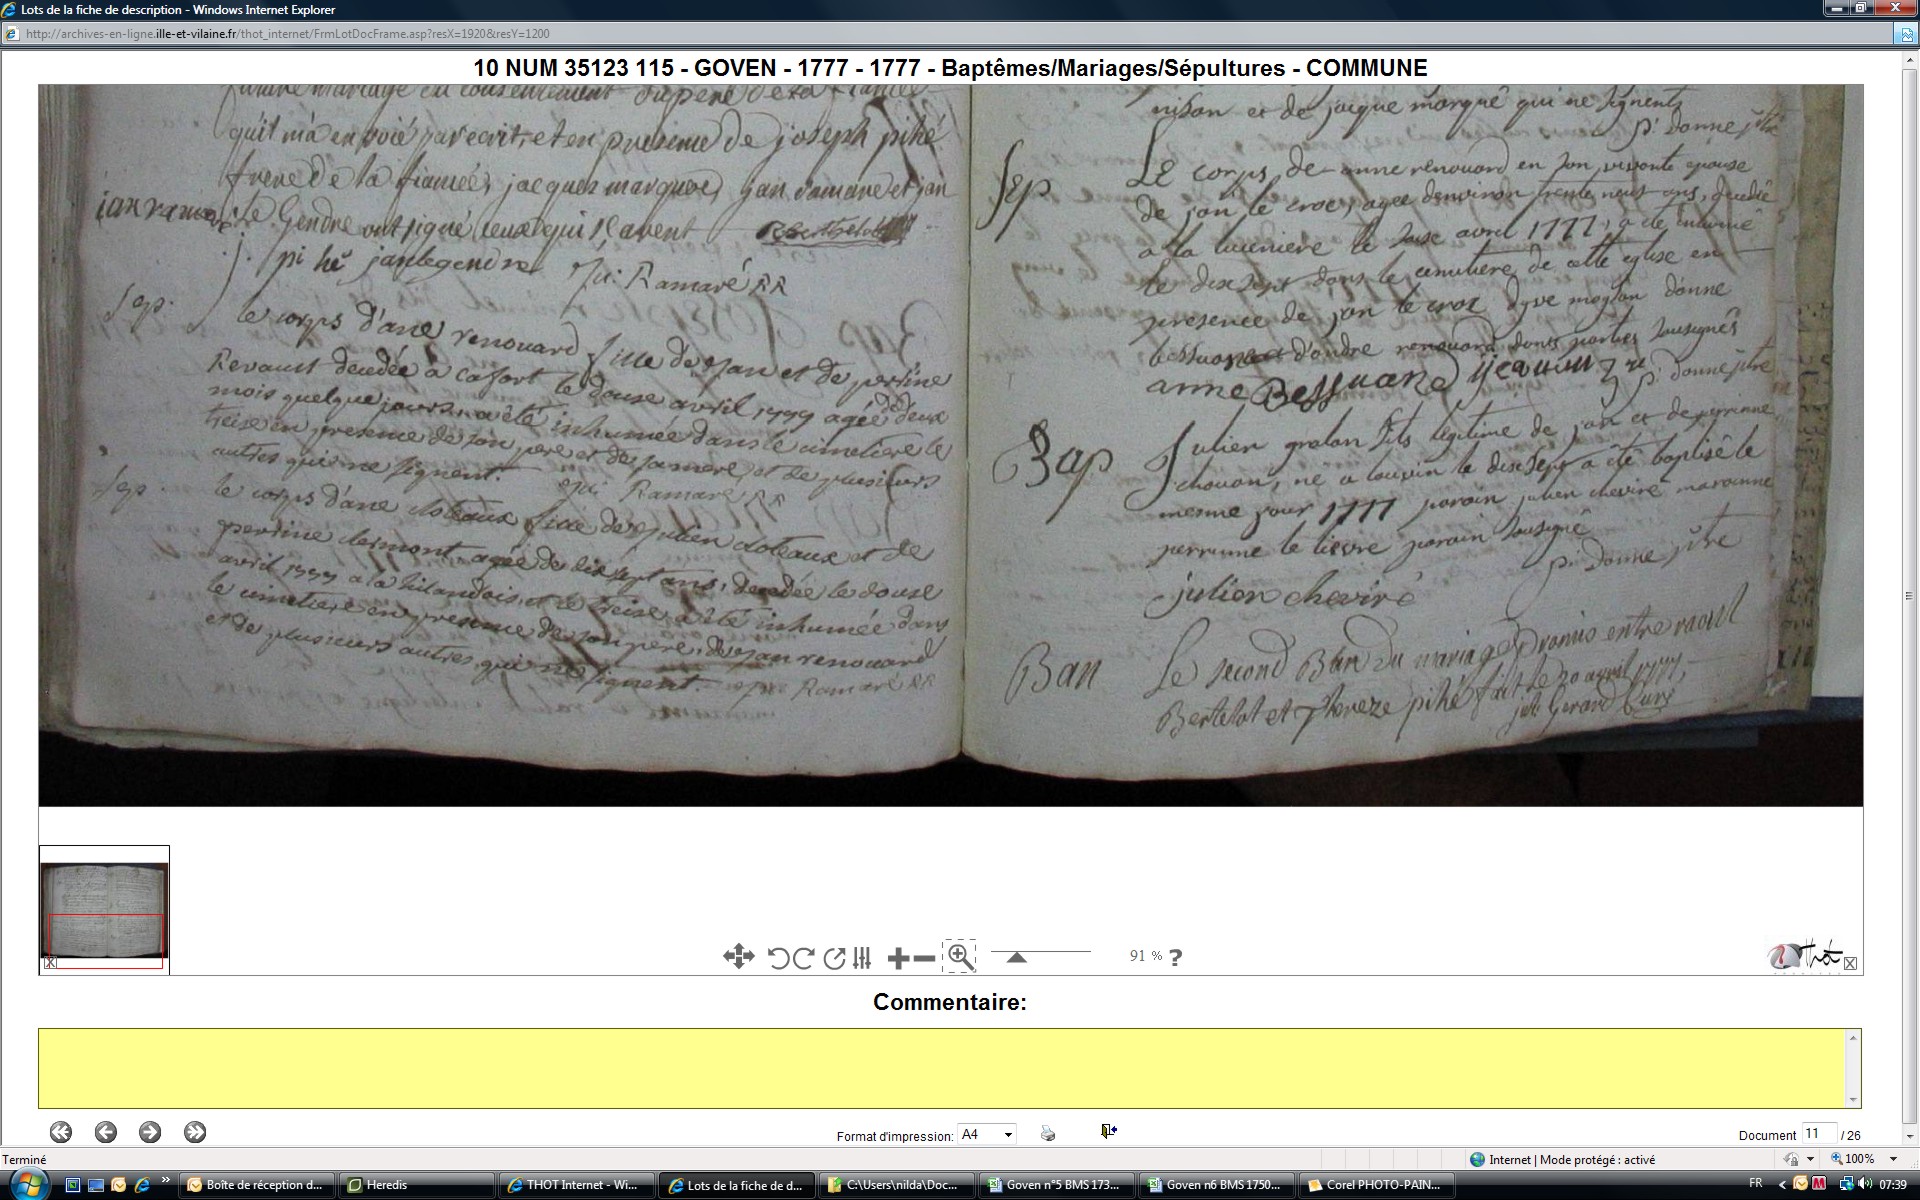 Lots de la fiche de description - Windows Internet Explorer
http://archives-en-ligne.ille-et-vilaine.fr/thot_internet/FrmLotDocFrame.asp?resX=1920&resY=1200
10 NUM 35123 115 - GOVEN - 1777 - 1777 - Baptêmes/Mariages/Sépultures - COMMUNE
mariage du consentement du pere de la
qu'il m'a envoié par ecrit, et en presence de joseph pihé
frere de la fiancée, jacques marquer, jan ramaré et jan
le Gendre ont signé ceux qui sçavent Rberthelot
jan ramare
j. pihé jan legendre
Ramaré RR
Sep.
le corps d'ane renouard fille de jan et de perrine
Renault decedée a cafort le douse avril 1777 agée de deux
mois quelque jours, a été inhumée dans le cimetiere le
treise en presence de son pere et de sa mere, et de plusieurs
autres qui ne signent. Ramaré RR
Sep.
le corps d'ane loteaux fille de julien loteaux et de
perrine clermont agée de dix sept ans, decedée le douse
avril 1777 a la hilandois, et le treise a été inhumée dans
le cimetiere en presence de son pere, de jan renouard
et de plusieurs autres qui ne signent. Ramaré RR
et de jacque marqué qui ne signents
p: donne ptre
Sep
Le corps de anne renouard en son vivante epouse
de jan le croc, agee denviron trente neuf ans, decedée
a la le saise avril 1777, a eté inhumé
le dix sept dans le cemitiere de cette eglise en
presence de jan le croc dyve moylan donne
bessuane d'andre renouard dont parties sousignés
anne Bessuane
p: donne ptre
Bap
Julien gralan fils legitime de jan et de perrinne
chouan, ne a louvin le dix sept a eté baptisé le
mesme jour 1777 parain julien cheviré maraine
perrinne le lievre parain sousigné
julien cheviré
p: donne ptre
Ban
Le second Ban du mariage promis entre raoul
Bertelot et Thereze pihé fait le 20 avril 1777,
Gerard Curé
91 % ?
Thot
Commentaire:
Format d'impression: A4
Document 11 / 26
Terminé
Internet | Mode protégé : activé
100%
Boîte de réception d...
Heredis
THOT Internet - Wi...
Lots de la fiche de d...
C:\Users\nilda\Doc...
Goven n°5 BMS 173...
Goven n6 BMS 1750...
Corel PHOTO-PAIN...
FR
07:39